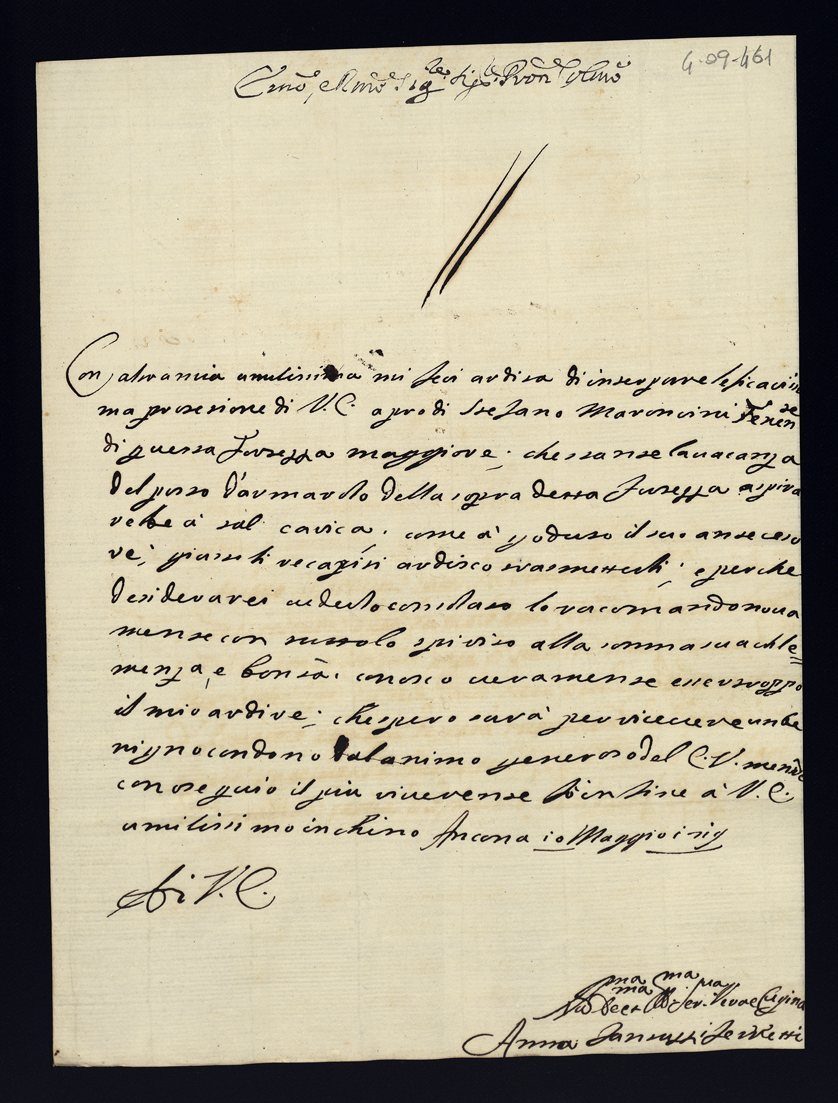 4-09-461
Emo, e Rmo Sigre Sigre Pron Colmo
Con altra mia umilissima mi feci ardita di inserpore lefica
ma protesione di V.E. a pro di Stefano Maroncini Tenen
se
di questa Fortezza maggiore; che stanse la vacanza
del posto d'armarolo della sopra detta Fortezza aspira
rebe à tal carica, come à goduto il suo anseceso
re; più seli recapisi ardisco trasmetterli; e perche
desiderarei vederlo consolato lo racomando nova
mense con tutto lo spirito alla somma sua chle=
menza, e bontà; conosco veramense esser troppo
il mio ardire; che spero sarà per ricevere un be
nigno condono dal animo generoso del E.V. mentre
con osequio il più riverense fò in fine à V.E.
umilissimo inchino Ancona 10 Maggio
Di V.E.
ma ma ma
Ser. Vera e Cugina
Anna